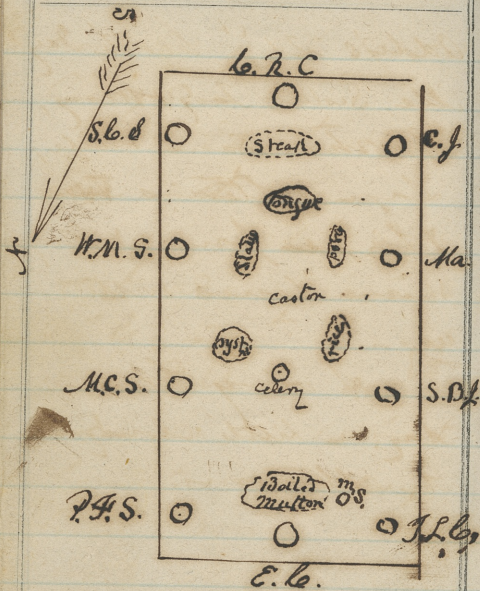 S
C. R. C
S. C. S
Steak
C. J.
Tongue
W. M. S.
Slaw
Pota
Ma.
castor
oyst
rice
M. C. S.
celery
S. B. J.
Boiled
Mutton
m
S.
P. H. S.
J. L. C.
E. C.
N